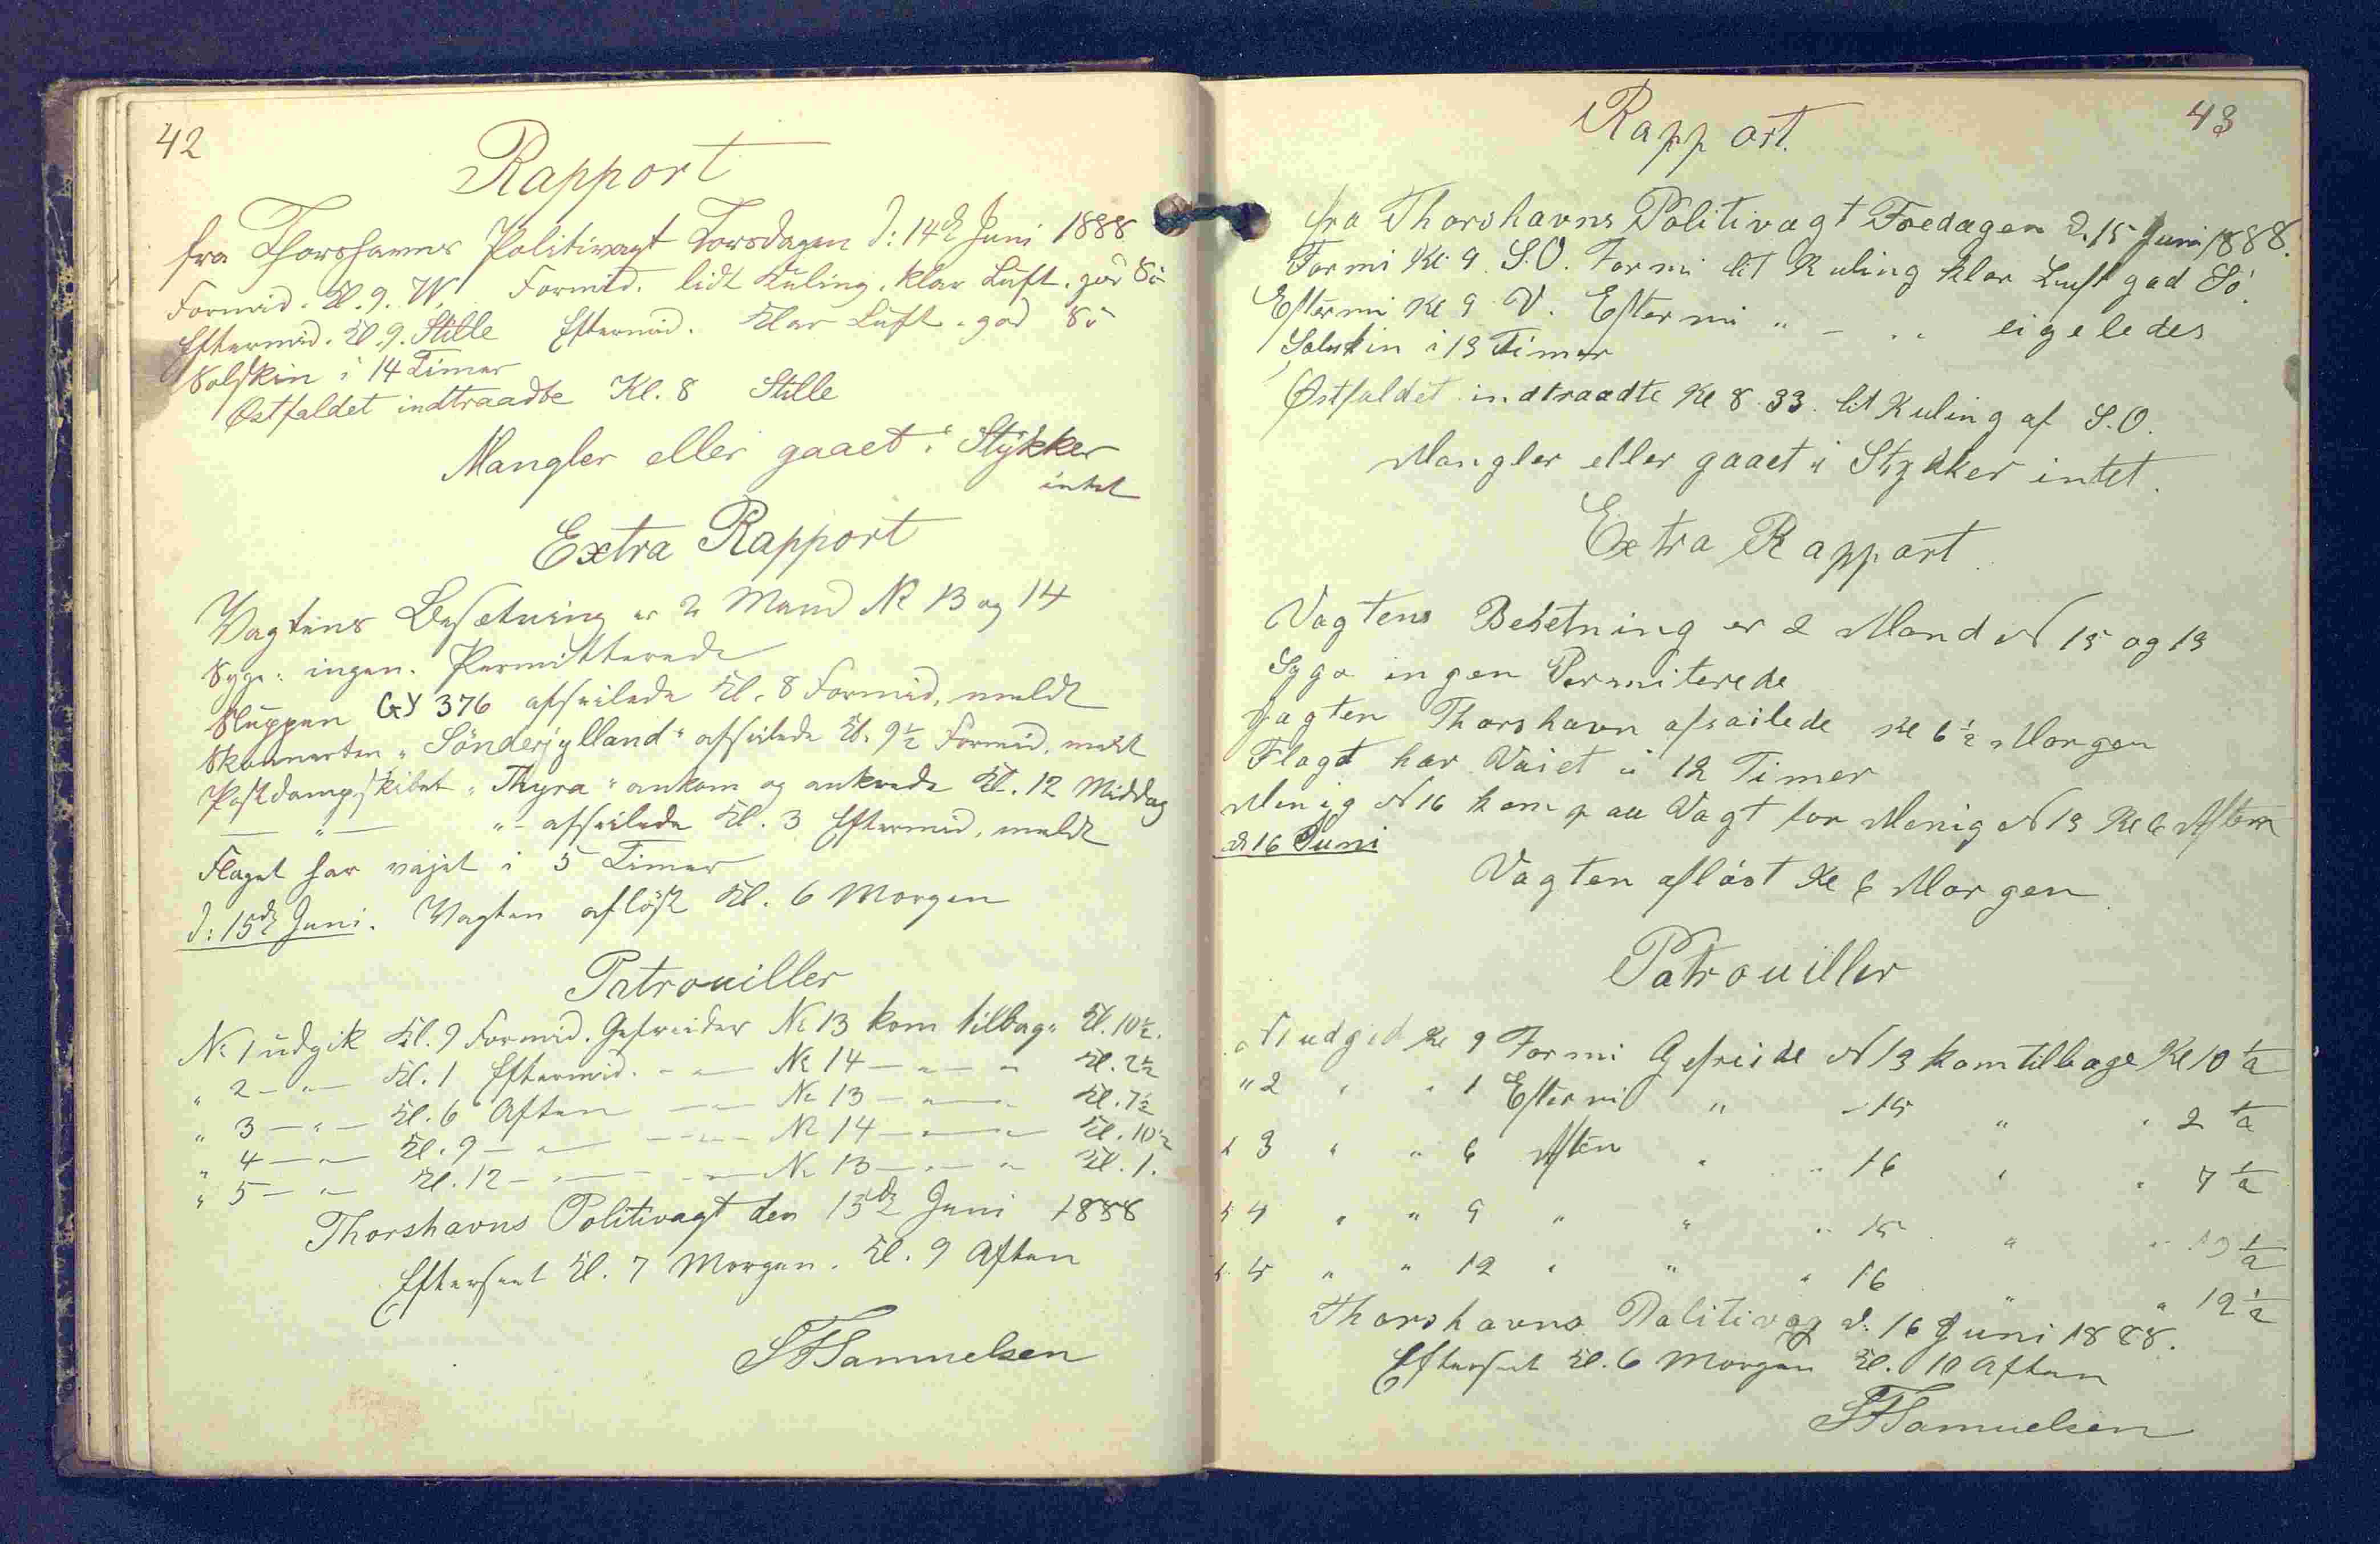 42
Rapport
fra Thorshavns Politivagt Torsdagen d: 14de Juni 1888
Formid. Kl. 9. W. Formid. lidt Kuling. klar Luft. god Sö
Eftermid. Kl. 9. Stille Eftermid. Klar Luft. god Sö
Solskin i 14 Timer
Østfaldet indtraadte Kl. 8 Stille
Mangler eller gaaet i Stykker
intet
Extra Rapport
Vagtens Besætning er 2 Mand No 13 og 14
Syge: ingen. Permitterede
Sluppen GY 376 afseilede Kl. 8 Formid. meldt
Skonnerten „Sönderjylland“ afseilede Kl. 9½ Formid. meldt
Postdampskibet „Thyra“ ankom og ankrede Kl. 12 Middag
— „ — „ - afseilede Kl. 3 Eftermid. meldt
Flaget har vajet i 5 Timer
d: 15de Juni. Vagten aflöst Kl. 6 Morgen
Patrouiller
No 1 udgik Kl. 9 Formid. Gefreider No 13 kom tilbage Kl. 10½.
„ 2 - „ - Kl. 1 Eftermid. - „ - No 14 - „ - „ Kl. 2½
„ 3 - „ - Kl. 6 Aften - „ - No 13 - „ - „ Kl. 7½
„ 4 - „ - Kl. 9 - „ - - „ - No 14 - „ - „ Kl. 10½
„ 5 - „ - Kl. 12 - „ - - „ - No 13 - „ - „ Kl. 1.
Thorshavns Politivagt den 15de Juni 1888
Efterseet Kl. 7 Morgen. Kl. 9 Aften
SFSamuelsen
43
Rapport.
fra Thorshavns Politivagt Fredagen d. 15 Juni 1888.
Formi Kl 9 S.O. Formi lit Kuling klar Luft god Sö.
Eftermi Kl 9 V. Eftermi „ - „ eigeledes
Solskin i 13 Timer
Østfaldet indtraadte Kl 8.33. lit Kuling af S.O.
Mangler eller gaaet i Stykker intet.
Extra Rapport.
Vagtens Besetning er 2 Mand N 15 og 13
Syge ingen Permiterede
Jagten Thorshavn afsailede Kl 6½ Morgen
Flagt har Vaiet i 12 Timer
Menig N 16 kom paa Vagt for Menig N 13 Kl 6 Aften
d 16 Juni
Vagten aflöst Kl 6 Morgen.
Patrouiller
N 1 udgik Kl 9 Formi Gefreide N 13 kom tilbage Kl 10 ½
„ 2 „ „ 1 Eftermi „ - 15 „ „ 2 ½
„ 3 „ „ 6 Aften „ „ 16 „ „ 7 ½
„ 4 „ „ 9 „ „ „ 15 „ „ 10 ½
„ 5 „ „ 12 „ „ „ 16 „ „ 12 ½
Thorshavns Politivag d. 16 Juni 1888.
Efterseet Kl. 6 Morgen Kl. 10 Aften
SFSamuelsen